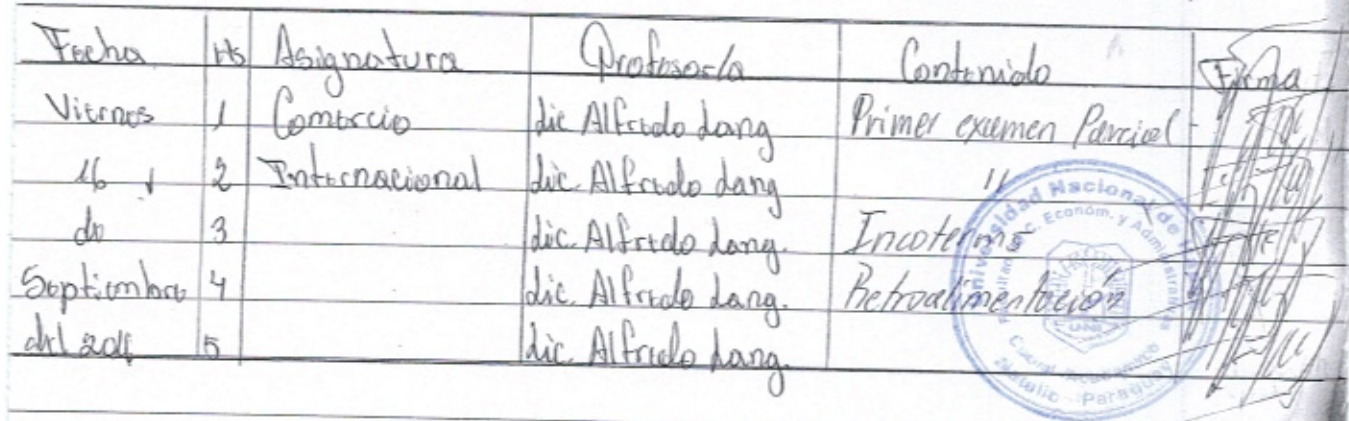 Fecha Hs Asignatura Profesor/a Contenido Firma
Viernes 1 Comercio Lic Alfredo Lang Primer examen Parcial
16 2 Internacional Lic. Alfredo Lang "
de 3 Lic. Alfredo Lang. Incoterms
Septiembre 4 Lic. Alfredo Lang. Retroalimentación
del 5 Lic. Alfredo Lang.
Universidad Nacional de
Econom. y Administrativas
UNI
Natalio - Paraguay